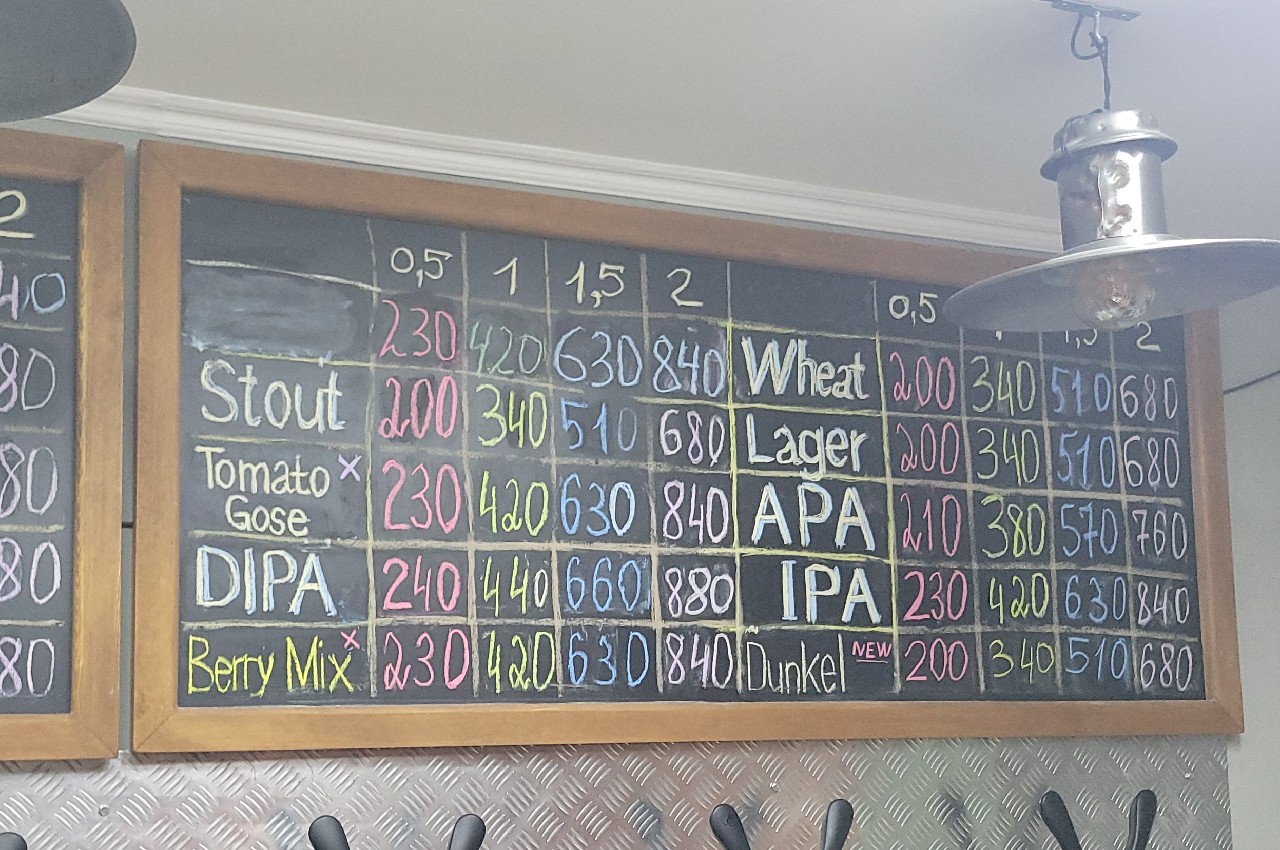 2
40
80
80
80
80
0,5 1 1,5 2 0,5 2
230 420 630 840 Wheat 200 340 510 680
Stout 200 340 510 680 Lager 200 340 510 680
Tomato x
Gose 230 420 630 840 APA 210 380 570 760
DIPA 240 440 660 880 IPA 230 420 630 840
Berry Mix x 230 420 630 840 Dunkel NEW 200 340 510 680